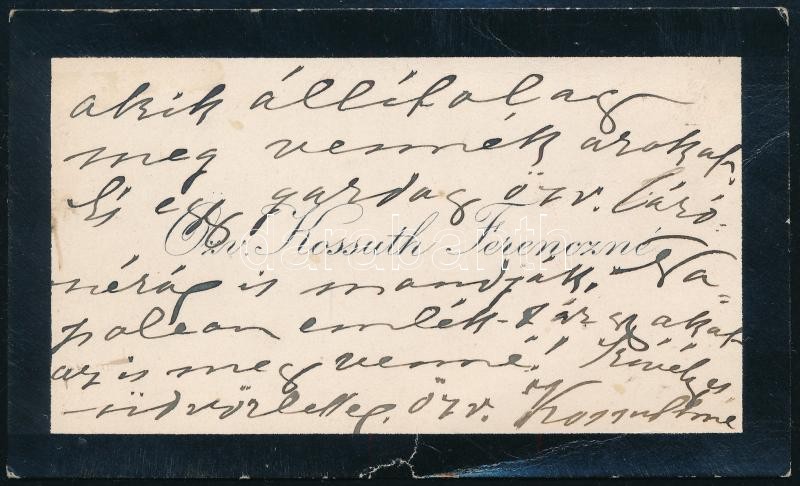 akik állítolag
meg vennék azokat.
És egy gazdag özv. báró-
Özv. Kossuth Ferenczné
néról is mondják, Na-
poleon emlék-tárgyakat
az is meg venné! Szívélyes
üdvözlettel. özv. Kossuthné
darabanth